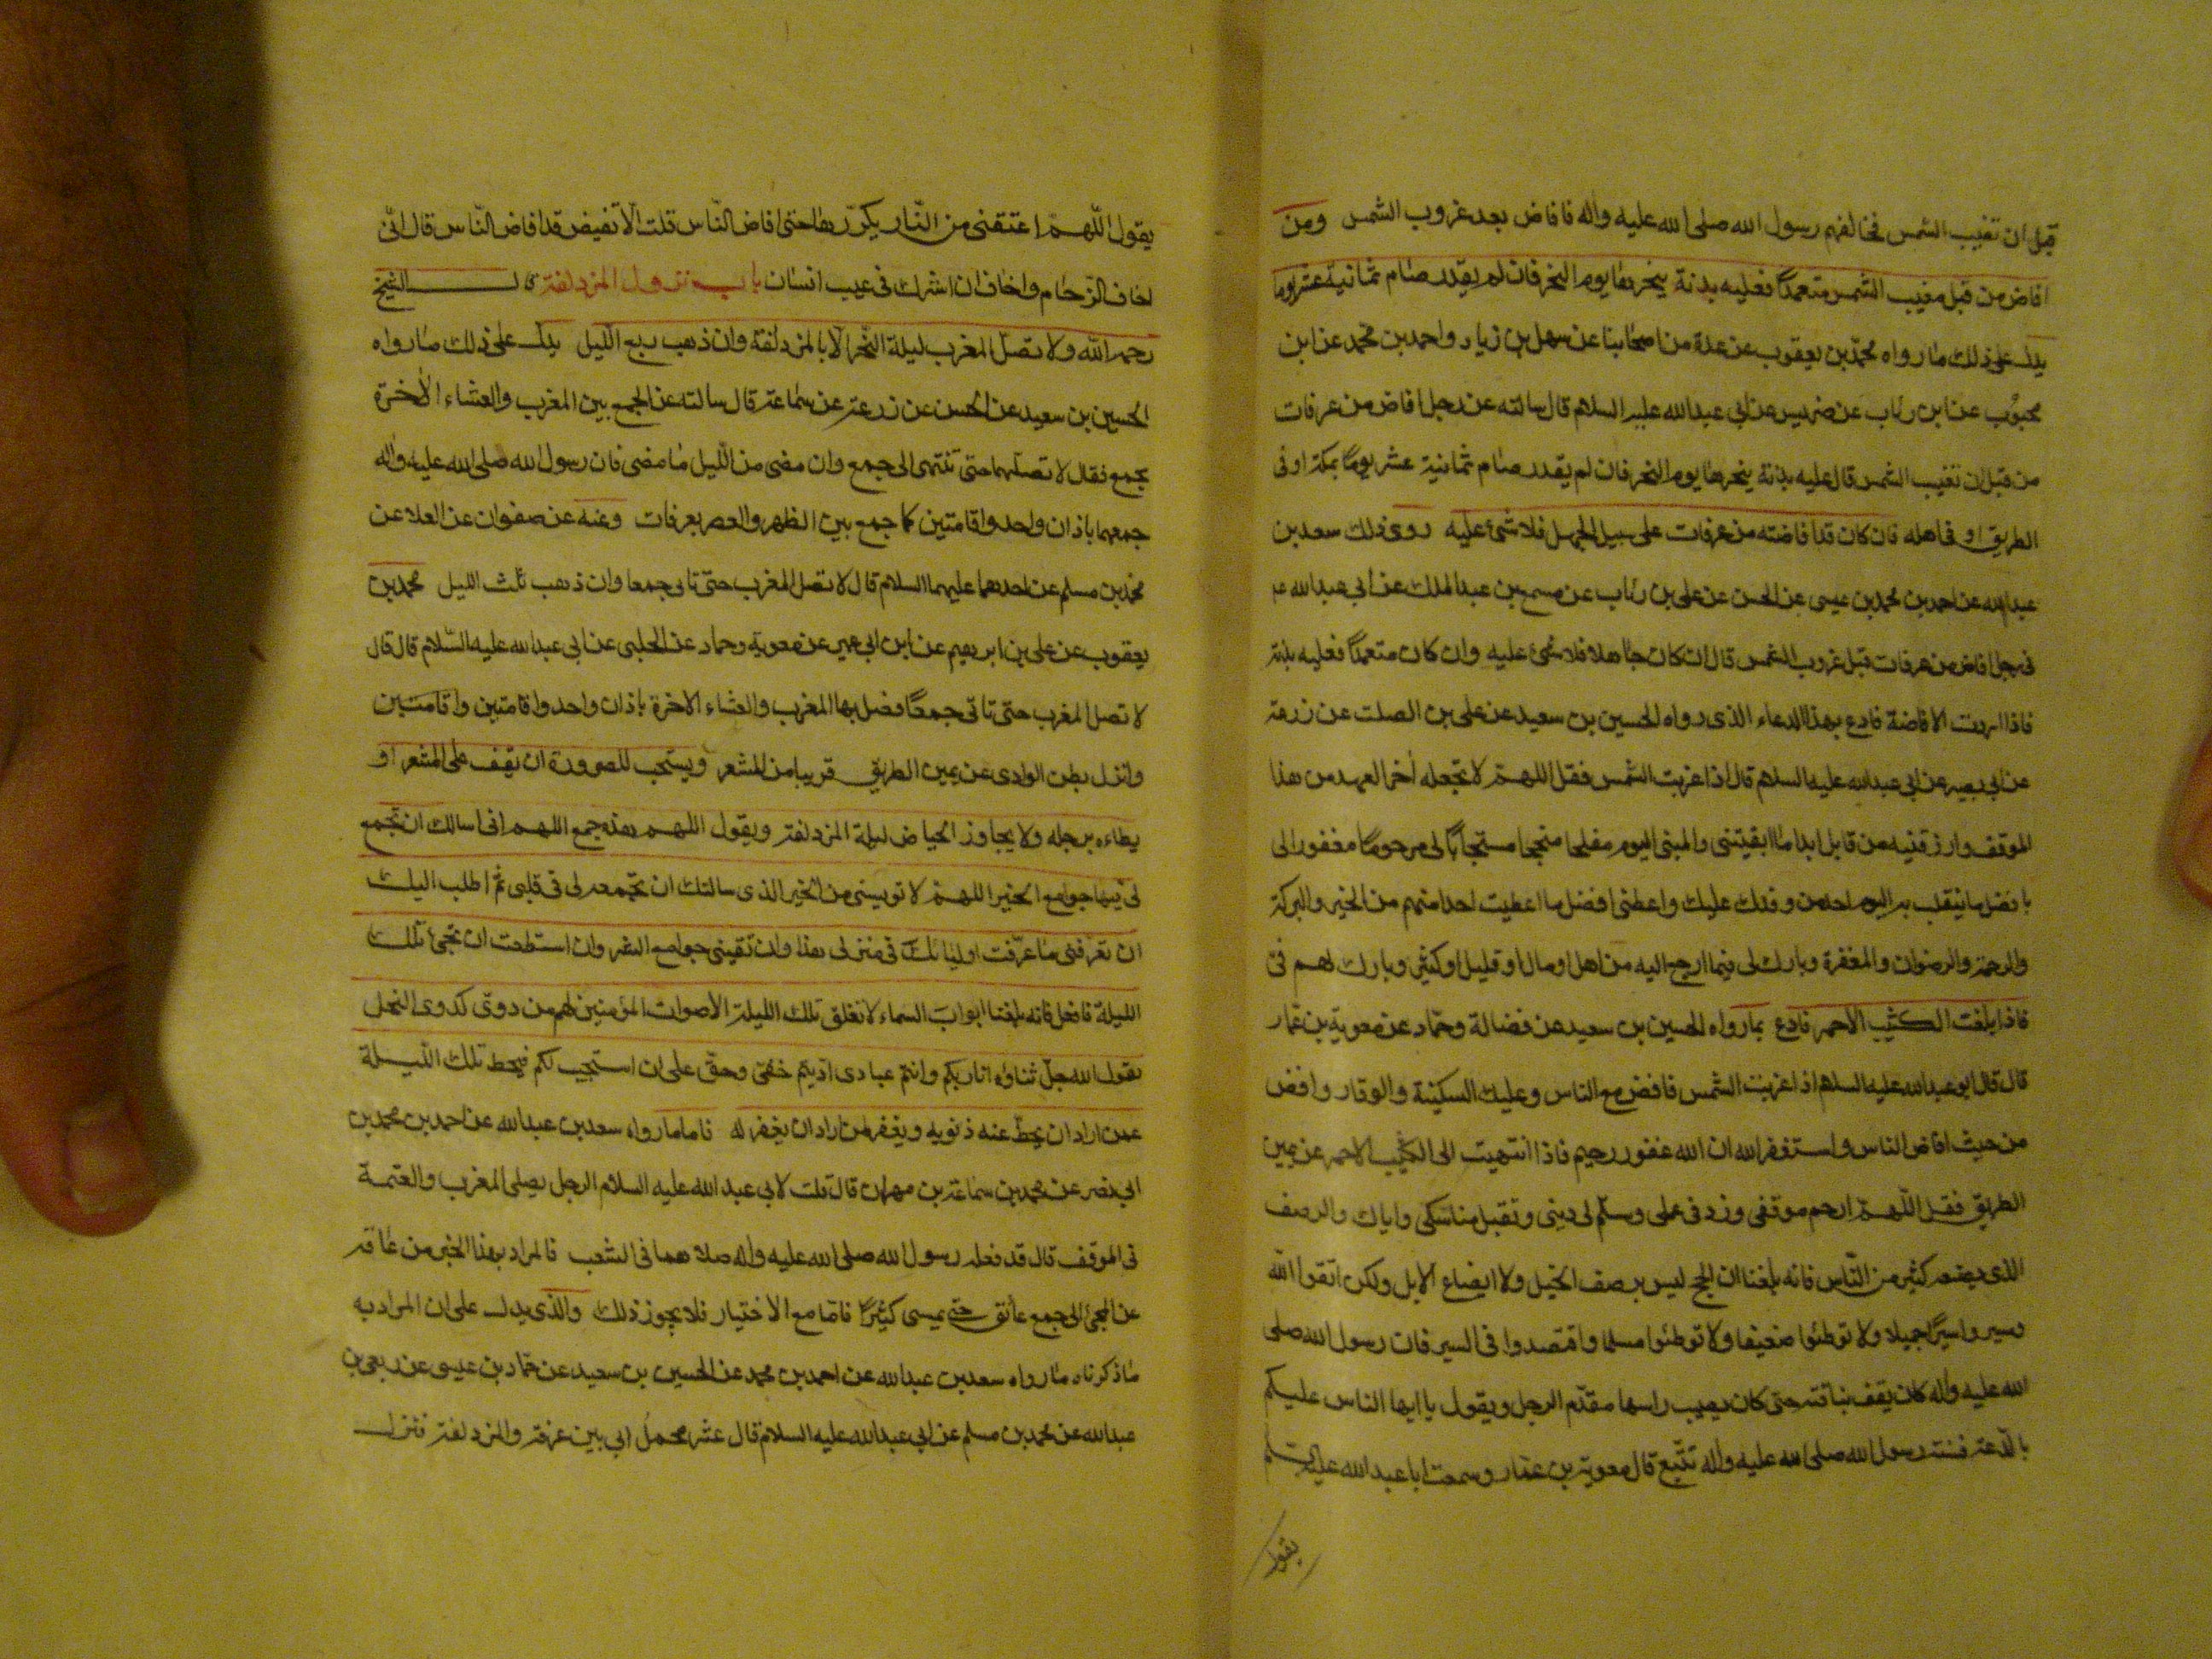 قبل ان تغيب الشمس فخالفهم رسول الله صلى الله عليه واله فافاض بعد غروب الشمس ومن
افاض من قبل مغيب الشمس متعمدًا فعليه بدنة ينحرها يوم النحر فان لم يقدر صام ثمانية عشر يوما
يدل على ذلك ما رواه محمد بن يعقوب عن عدة من اصحابنا عن سهل بن زياد واحمد بن محمد عن ابن
محبوب عن ابن رئاب عن ضريس عن ابي عبدالله عليه السلام قال سالته عن رجل افاض من عرفات
من قبل ان تغيب الشمس قال عليه بدنة ينحرها يوم النحر فان لم يقدر صام ثمانية عشر يومًا بمكة او في
الطريق او في اهله فان كان قد افاضته من عرفات على سبيل الجهل فلا شئ عليه روى ذلك سعد بن
عبدالله عن احمد بن محمد بن عيسى عن الحسن عن علي بن رئاب عن مسمع بن عبدالملك عن ابي عبدالله ع
في رجل افاض من عرفات قبل غروب الشمس قال ان كان جاهلا فلا شئ عليه وان كان متعمدًا فعليه بدنة
فاذا اردت الافاضة فادع بهذا الدعاء الذى رواه الحسين بن سعيد عن علي بن الصلت عن زرعة
عن ابي بصير عن ابي عبدالله عليه السلام قال اذا غربت الشمس فقل اللهم لا تجعله اخر العهد من هذا
الموقف وارزقنيه من قابل ابدا ما ابقيتنى واقلبنى اليوم مفلحا منجحا مستجابًا لى مرحومًا مغفورا لى
بافضل ما ينقلب به اليوم احد من وفدك عليك واعطنى افضل ما اعطيت احدا منهم من الخير والبركة
والرحمة والرضوان والمغفرة وبارك لى فيما ارجع اليه من اهل او مال او قليل او كثير وبارك لهم في
فاذا بلغت الكثيب الاحمر فادع بما رواه الحسين بن سعيد عن فضالة وحماد عن معوية بن عمار
قال قال ابو عبدالله عليه السلام اذا غربت الشمس فافض مع الناس وعليك السكينة والوقار وافض
من حيث افاض الناس واستغفر الله ان الله غفور رحيم فاذا انتهيت الى الكثيب الاحمر عن يمين
الطريق فقل اللهم ارحم موقفى وزد في عملى وسلم لى دينى وتقبل مناسكى واياك والرصف
الذى يصنعه كثير من الناس فانه بلغنا ان الحج ليس برصف الخيل ولا ايضاع الابل ولكن اتقوا الله
وسيروا سيرًا جميلا ولا توطئوا ضعيفا ولا توطئوا مسلما واقتصدوا في السير فان رسول الله صلى
الله عليه واله كان يقف بناقته حتى كان يصيب راسها مقدم الرحل ويقول يا ايها الناس عليكم
بالدعة فسنة رسول الله صلى الله عليه واله تتبع قال معوية بن عمار وسمعت ابا عبدالله عليه السلم
يقول
يقول اللهم اعتقنى من النار يكررها حتى افاض الناس قلت الا تفيض قد افاض الناس قال انى
اخاف الزحام واخاف ان اشرك في عيب انسان باب نزول المزدلفة قال الشيخ
رحمه الله ولا تصل المغرب ليلة النحر الا بالمزدلفة وان ذهب ربع الليل يدل على ذلك ما رواه
الحسين بن سعيد عن الحسن عن زرعة عن سماعة قال سالته عن الجمع بين المغرب والعشاء الاخرة
بجمع فقال لا تصلهما حتى تنتهى الى جمع وان مضى من الليل ما مضى فان رسول الله صلى الله عليه واله
جمعهما باذان واحد واقامتين كما جمع بين الظهر والعصر بعرفات وعنه عن صفوان عن العلا عن
محمد بن مسلم عن احدهما عليهما السلام قال لا تصل المغرب حتى تاتى جمعا وان ذهب ثلث الليل محمد بن
يعقوب عن علي بن ابرهيم عن ابن ابي عمير عن معوية وحماد عن الحلبى عن ابي عبدالله عليه السلام قال قال
لا تصل المغرب حتى تاتى جمعًا فصل بها المغرب والعشاء الاخرة باذان واحد واقامتين واقامتين
وانزل بطن الوادى عن يمين الطريق قريبا من المشعر ويستحب للصرورة ان يقف على المشعر او
يطاءه برجله ولا يجاوز الحياض ليلة المزدلفة ويقول اللهم هذه جمع اللهم انى اسالك ان تجمع
لى فيها جوامع الخير اللهم لا تويسنى من الخير الذى سالتك ان تجمعه لى في قلبى ثم اطلب اليك
ان تعرفنى ما عرفت اوليائك في منزلى هذا وان تقينى جوامع الشر وان استطعت ان تحيى تلك
الليلة فافعل فانه بلغنا ابواب السماء لا تغلق تلك الليلة لاصوات المؤمنين لهم دوى كدوى النحل
يقول الله جل ثناؤه انا ربكم وانتم عبادى اديتم حقى وحق على ان استجيب لكم فيحط تلك الليلة
عمن اراد ان يحط عنه ذنوبه ويغفر لمن اراد ان يغفر له فاما ما رواه سعد بن عبدالله عن احمد بن محمد بن
ابي نصر عن محمد بن سماعة بن مهران قال قلت لابي عبدالله عليه السلام الرجل يصلى المغرب والعتمة
في الموقف قال قد فعله رسول الله صلى الله عليه واله صلاهما في الشعب فالمراد بهذا الخبر من عاقه
عن المجئ الى جمع عائق حتى يمسى كثيرًا فاما مع الاختيار فلا يجوز ذلك والذى يدل على ان المراد به
ما ذكرناه ما رواه سعد بن عبدالله عن احمد بن محمد عن الحسين بن سعيد عن حماد بن عيسى عن ربعى بن
عبدالله عن محمد بن مسلم عن ابي عبدالله عليه السلام قال عثر محمل ابي بين عرفة والمزدلفة فنزل